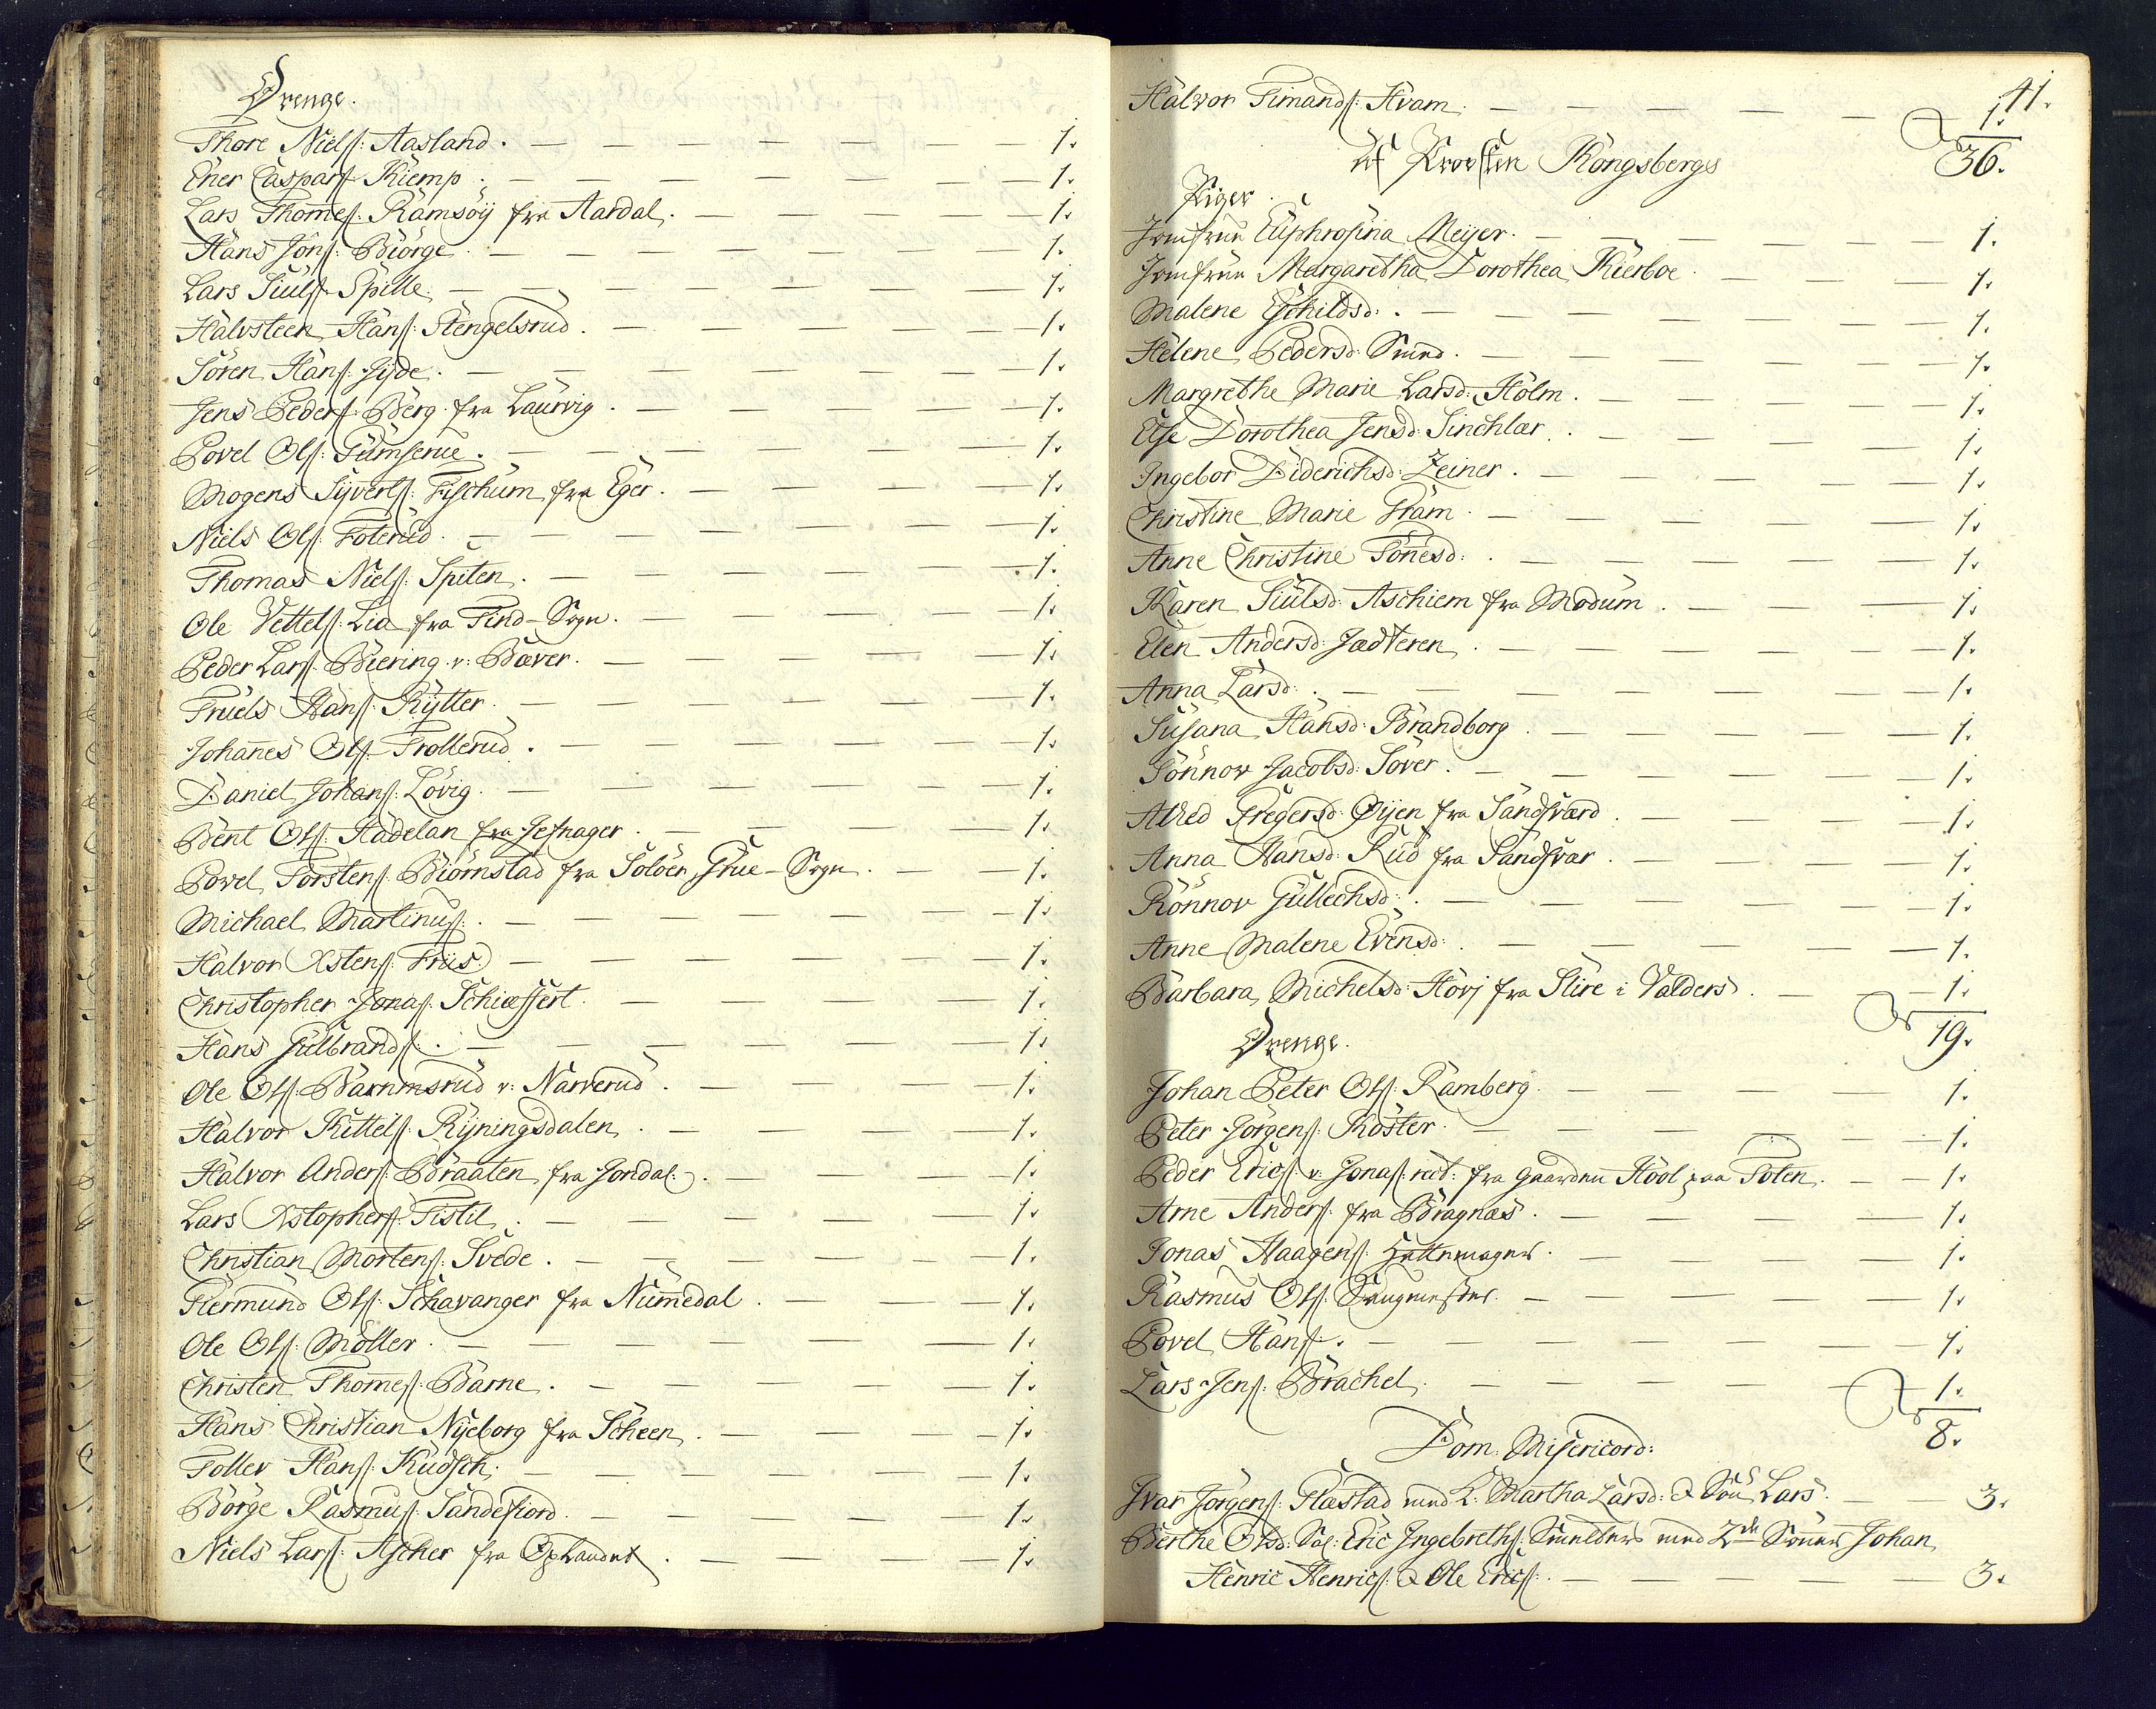 Drenge.
Thore Nielss: Aasland. 1.
Ener Casparss Kiemp. 1.
Lars Thomess: Ramsöij fra Aardal. 1.
Hans Jönss: Biörge. 1.
Lars Siulss Spille. 1.
Halvsteen Hanss: Stengelsrud. 1.
Sören Hanss: Jijde. 1.
Jens Pederss: Berg. fra Laurvig. 1.
Povel Olss: Gumserue. 1.
Mogens Sijvertss: Fischum fra Eger. 1.
Niels Olss: Foterud. 1.
Thomas Nielss: Spiten. 1.
Ole Vettelss: Lia fra Tind-Sogn. 1.
Peder Larss: Biering v: Bæver. 1.
Truels Hanss: Rijtter. 1.
Johanes Olss: Trollerud. 1.
Daniel Johanss: Lövig. 1.
Bent Olss: Hadelan fra Jesnager. 1.
Povel Torstenss: Biörnstad fra Solöer, Grue-Sogn. 1.
Michael Martinuss: 1.
Halvor Xstenss: Friis. 1.
Christopher Jonass: Schiæffert. 1.
Hans Gulbrandss: 1.
Ole Olss: Barnmsrud v: Narverud. 1.
Halvor Kittelss: Rijningsdalen. 1.
Halvor Anderss: Braaten fra Jondal. 1.
Lars Xstopherss: Tistil. 1.
Christian Mortenss: Svede. 1.
Giermund Olss: Schavanger fra Numedal. 1.
Ole Olss: Möller. 1.
Christen Thomess: Barne. 1.
Hans Christian Nijeborg fra Scheen. 1.
Tollev Hanss: Kudsch. 1.
Börge Rasmuss: Sandefiord. 1.
Niels Larss: Ascher fra Oplandet. 1.
41.
Halvor Simandss: Hvam. 1.
36.
Af Provsten Kongsbergs
Piger.
Jomfrue Euphrosina Meijer. 1.
Jomfrue Margaretha Dorothea Kierboe. 1.
Malene Eschildsd: 1.
Helene Pedersd: Smed. 1.
Margrethe Marie Larsd: Holm. 1.
Else Dorothea Jensd: Sinchlær. 1.
Ingebor Diderichsd: Zeiner. 1.
Christine Marie Pram. 1.
Anne Christine Tönesd: 1.
Karen Siulsd: Aschiem fra Modum. 1.
Elen Andersd: Jædteren. 1.
Anna Larsd: 1.
Susana Hansd: Brandborg. 1.
Sönnov Jacobsd: Söver. 1.
Alhed Gregersd: Öijen fra Sandsværd. 1.
Anna Hansd: Rud fra Sandsvær. 1.
Rönnov Gullechsd: 1.
Anne Malene Evensd: 1.
Barbara Michelsd: Hovj fra Slire i Valders. 1.
19.
Drenge.
Johan Peter Olss: Ramberg. 1.
Peter Jörgenss: Köster. 1.
Peder Ericss: v: Jonass: rect: fra Gaarden Hool paa Toten. 1.
Arne Anderss: fra Bragnæs. 1.
Jonas Haagenss: Hattemager. 1.
Rasmus Olss: Saugmester. 1.
Povel Hanss: 1.
Lars Jenss: Brachel. 1.
8.
Dom: Misericord:
Jvar Jörgenss: Flæstad med K: Martha Larsd: & Sön Lars. 3.
Berthe Olsd: Sal: Eric Ingebrethss: Smelters med 2de Sönner Johan
Henric Henricss: & Ole Ericss: 3.